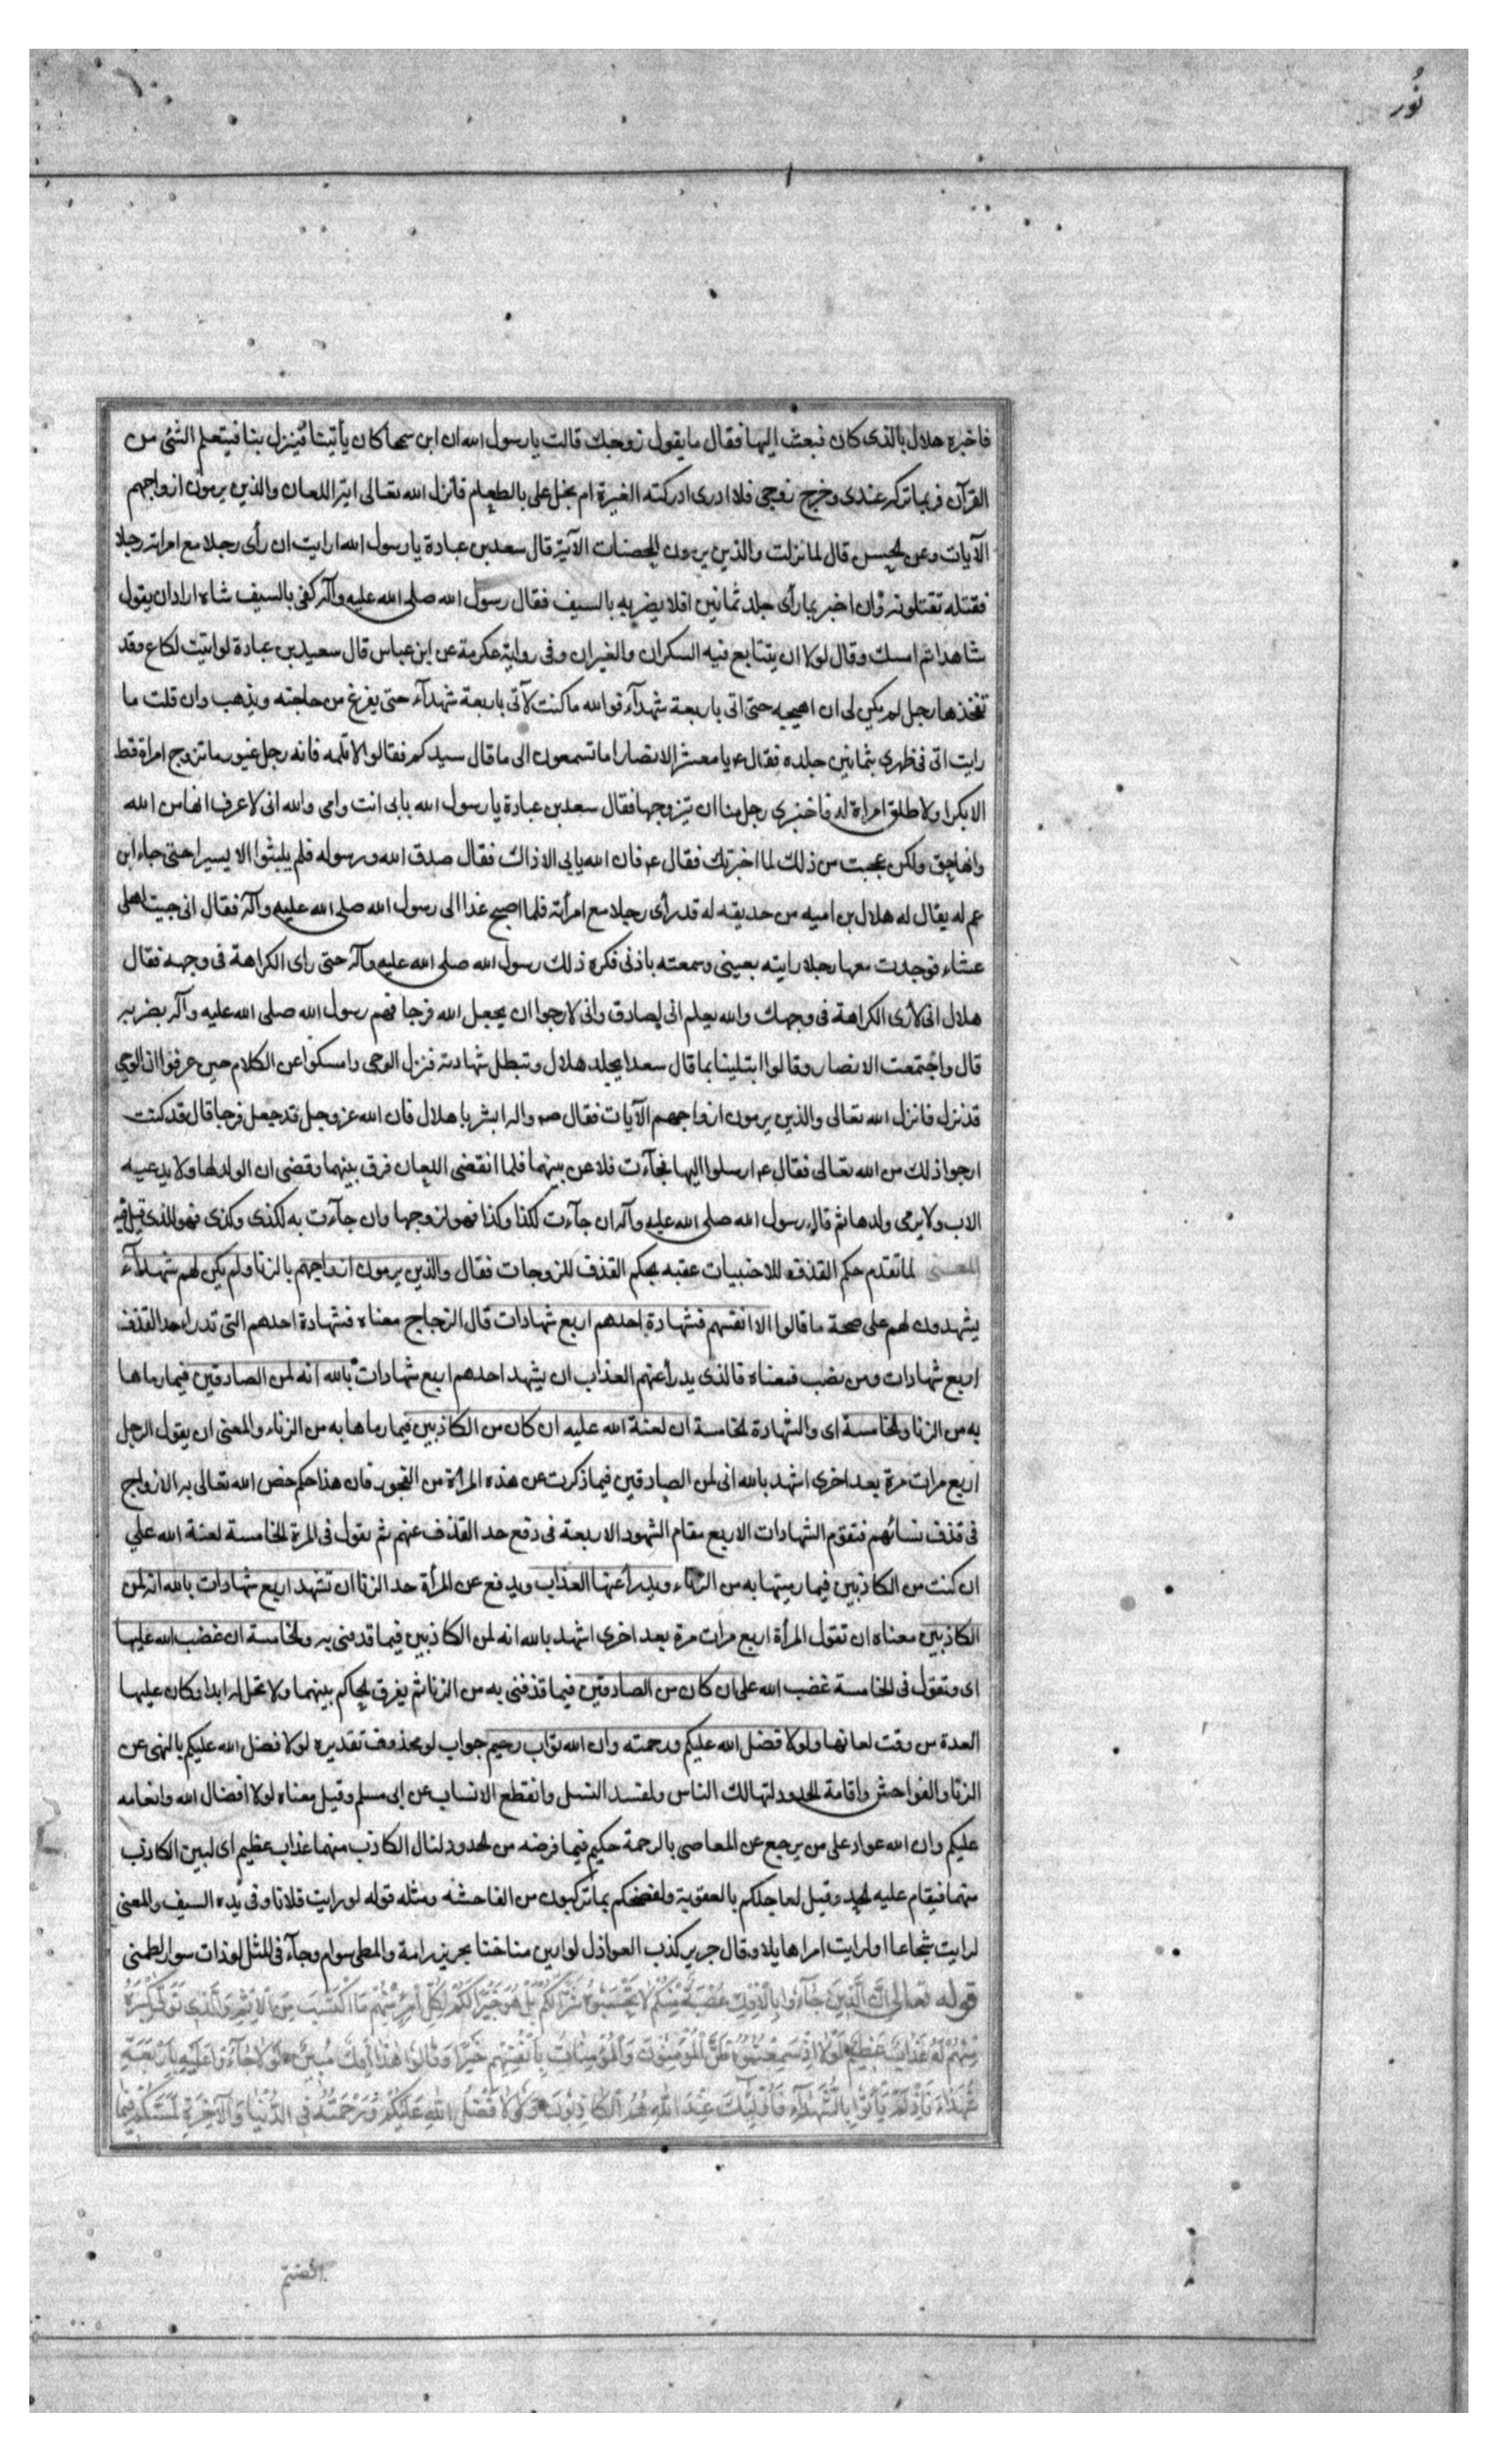 نُور
فاخبره هلال بالذى كان فبعث اليها فقال ما يقول زوجك قالت يا رسول الله ان ابن سحما كان يأتينا فينزل بنا فيتعلم الشئ من
القرآن فربما تركه عندى وخرج زوجى فلا ادرى ادركته الغيرة ام بخل على بالطعام فانزل الله تعالى آية اللعان والذين يرمون ازواجهم
الآيات وعن الحسن قال لما نزلت والذين يرمون المحصنات الآية قال سعد بن عبادة يا رسول الله ارايت ان رأى رجلا مع امراته رجلا
فقتله تقتلونه وان اخبر بما رأى جلد ثمانين افلا يضربه بالسيف فقال رسول الله صلى الله عليه وآله كفى بالسيف شاه اراد ان يقول
شاهدا ثم امسك وقال لولا ان يتتابع فيه السكران والغيران وفى رواية عكرمة عن ابن عباس قال سعيد بن عبادة لو اتيت لكاع وقد
تفخذها رجل لم يكن لى ان اهيجه حتى اتى باربعة شهدآء فوالله ما كنت لآتى باربعة شهدآء حتى يفرغ من حاجته ويذهب وان قلت ما
رايت اتى فى ظهرى بثمانين جلده فقال ع يا معشر الانصار اما تسمعون الى ما قال سيدكم فقالوا لا تلمه فانه رجل غيور ما تزوج امراة قط
الا بكرا ولا طلق امراة له فاخبرى رجل منا ان يتزوجها فقال سعد بن عبادة يا رسول الله بابى انت وامى والله انى لاعرف انها من الله
وانها حق ولكن عجبت من ذلك لما اخبرتك فقال ع فان الله يابى الا ذاك فقال صدق الله ورسوله فلم يلبثوا الا يسيرا حتى جاء ابن
عم له يقال له هلال بن اميه من حديقه له قد رأى رجلا مع امرأته فلما اصبح غدا الى رسول الله صلى الله عليه وآله فقال انى جيت اهلى
عشاء فوجدت معها رجلا رايته بعينى وسمعته باذنى فكره ذلك رسول الله صلى الله عليه وآله حتى راى الكراهة فى وجهه فقال
هلال انى لأرى الكراهة فى وجهك والله يعلم انى لصادق وانى لارجوا ان يجعل الله فرجا فهم رسول الله صلى الله عليه وآله بضربه
قال واجتمعت الانصار وقالوا ابتلينا بما قال سعد ايجلد هلال وتبطل شهادته فنزل الوحى وامسكوا عن الكلام حين عرفوا ان الوحى
قد نزل فانزل الله تعالى والذين يرمون ازواجهم الآيات فقال ص واله ابشر يا هلال فان الله عز وجل قد جعل فرجا قال قد كنت
ارجوا ذلك من الله تعالى فقال ع ارسلوا اليها فجآءت فلاعن بينهما فلما انقضى اللعان فرق بينهما وقضى ان الولد لها ولا يدعى
الاب ولا يرمى ولدها ثم قال رسول الله صلى الله عليه وآله ان جآءت لكذا وكذا فهو لزوجها وان جآءت به لكذى وكذى فهو للذى قيل فيه
المعنى لما تقدم حكم القذف للاجنبيات عقبه بحكم القذف للزوجات فقال والذين يرمون ازواجهم بالزنا ولم يكن لهم شهدآء
يشهدون لهم على صحة ما قالوا الا انفسهم فشهادة احدهم اربع شهادات قال الزجاج معناه فشهادة احدهم التى تدرا حد القذف
اربع شهادات ومن نصب فمعناه فالذى يدرأ عنهم العذاب ان يشهد احدهم اربع شهادات بالله انه لمن الصادقين فيما رماها
به من الزنا والخامسة اى والشهادة الخامسة ان لعنة الله عليه ان كان من الكاذبين فيما رماها به من الزناء والمعنى ان يقول الرجل
اربع مرات مرة بعد اخرى اشهد بالله انى لمن الصادقين فيما ذكرت عن هذه المرأة من الفجور فان هذا حكم خص الله تعالى به الازواج
فى قذف نسائهم فتقوم الشهادات الاربع مقام الشهود الاربعة فى دفع حد القذف عنهم ثم يقول فى المرة الخامسة لعنة الله على
ان كنت من الكاذبين فيما رميتها به من الزناء ويدرأ عنها العذاب ويدفع عن المرأة حد الزنا ان تشهد اربع شهادات بالله انه لمن
الكاذبين معناه ان تقول المرأة اربع مرات مرة بعد اخرى اشهد بالله انه لمن الكاذبين فيما قذفنى به والخامسة ان غضب الله عليها
اى وتقول فى الخامسة غضب الله على ان كان من الصادقين فيما قذفنى به من الزنا ثم يفرق الحاكم بينهما ولا تحل له ابدا وكان عليها
العدة من وقت لعانها ولولا فضل الله عليكم ورحمته وان الله تواب رحيم جواب لو محذوف تقديره لولا فضل الله عليكم بالنهى عن
الزنا والفواحش واقامة الحدود لتهالك الناس ولفسد النسل وانقطع الانساب عن ابى مسلم وقيل معناه لولا افضال الله وانعامه
عليكم وان الله عواد على من يرجع عن المعاصى بالرحمة حكيم فيما فرضه من الحدود لنال الكاذب منهما عذاب عظيم اى لبين الكاذب
منهما فيقام عليه الحد وقيل لعاجلكم بالعقوبة ولفضحكم بما تركبون من الفاحشه ومثله قوله لو رايت فلانا وفى يده السيف والمعنى
لرايت شجاعا او لرايت امرا هايلا وقال جرير كذب العواذل لو راين مناخنا بحزيز رامة والمطى سوام وجآء فى المثل لو ذات سوار لطمنى
قوله تعالى اِنَّ الَّذِينَ جَآءُوا بِالْاِفْكِ عُصْبَةٌ مِنْكُمْ لَا تَحْسَبُوهُ شَرًّا لَكُمْ بَلْ هُوَ خَيْرٌ لَكُمْ لِكُلِّ امْرِئٍ مِنْهُمْ مَا اكْتَسَبَ مِنَ الْاِثْمِ وَالَّذِى تَوَلَّى كِبْرَهُ
مِنْهُمْ لَهُ عَذَابٌ عَظِيمٌ لَوْلَا اِذْ سَمِعْتُمُوهُ ظَنَّ الْمُؤْمِنُونَ وَالْمُؤْمِنَاتُ بِاَنْفُسِهِمْ خَيْرًا وَقَالُوا هٰذَا اِفْكٌ مُبِينٌ لَوْلَا جَآءُوا عَلَيْهِ بِاَرْبَعَةِ
شُهَدَاءَ فَاِذْ لَمْ يَأْتُوا بِالشُّهَدَآءِ فَاُولٰئِكَ عِنْدَ اللهِ هُمُ الْكَاذِبُونَ وَلَوْلَا فَضْلُ اللهِ عَلَيْكُمْ وَرَحْمَتُهُ فِى الدُّنْيَا وَالْآخِرَةِ لَمَسَّكُمْ فِيمَا
افضتم